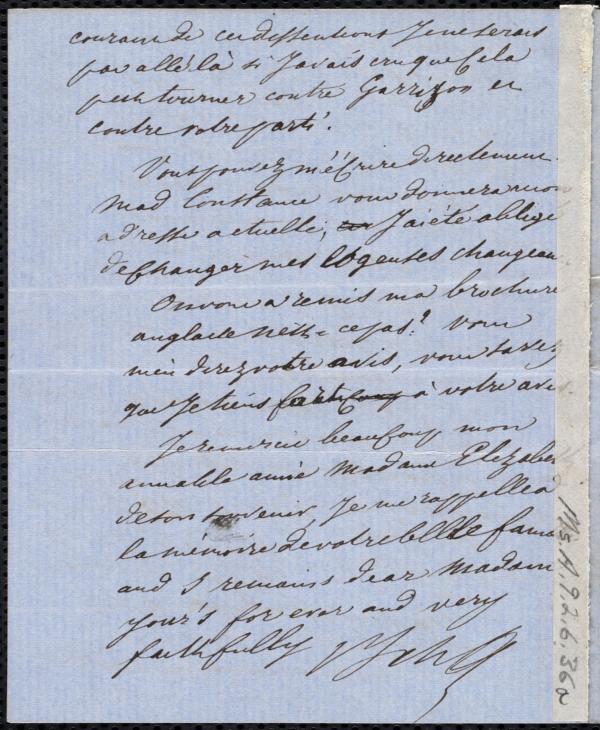 courant de ces dissentions Je ne serais
pas allé là si J'avais cru que Cela
peut tourner contre Garrizon et
contre votre parti.
Vous pouvez m'éCrire directement.
Mad Constance vous donnera mon
adresse actuelle, J'ai été obligé
de Changer mes
On vous a remis ma brochure
anglaise nest-ce pas? Vous
m'en direz votre avis, vous savez
que Je tiens à votre avis.
Je remercie beaucoup mon
aimable amie Madame Elizabe
de son souvenir, Je me rappelle à
la mémoire de votre belle fama
and I remains dear Madam
your's for ever and very
faithfully
Ms.A.9.2.6.36a